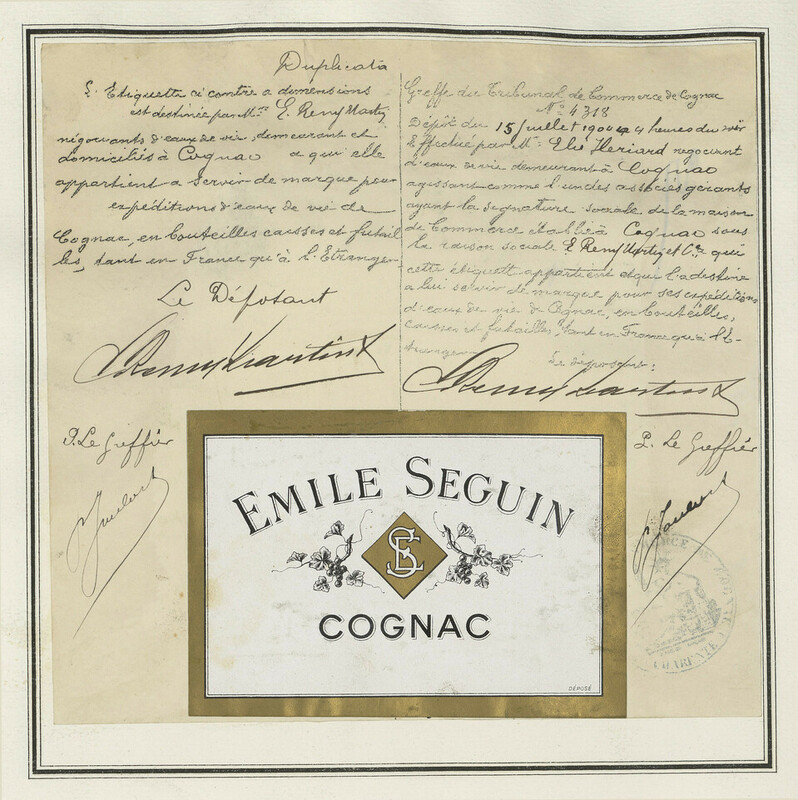 Duplicata
L'Etiquette ci contre a dimensions
est destinée par Mrs E. Remy Martin
négociants d'eaux de vie, demeurant et
domiciliés à Cognac a qui elle
appartient a servir de marque pour
expéditions d'eaux de vie de
Cognac, en bouteilles caisses et futail
les, tant en France qu'à l'Etranger.
Le Déposant
E Remy Martin & Co
P. Le Greffier
Greffe du Tribunal de Commerce de Cognac
No 4318
Dépôt du 15 Juillet 1904 a 4 heures du soir
Effectué par Mr Elie Heriard negociant
d'eaux de vie demeurant à Cognac
agissant comme l'un des associés gérants
ayant la signature sociale de la maison
de Commerce établie à Cognac sous
la raison sociale E. Remy Martin et Cie qui
cette étiquette appartient et qui l'a destine
a lui servir de marque pour ses expéditions
d'eaux de vie de Cognac, en bouteilles,
caisses et futailles, tant en France qu'à l'E-
tranger.
Le déposant:
E Remy Martin & Co
P. Le Greffier
EMILE SEGUIN
COGNAC
DÉPOSÉ
CHARENTE